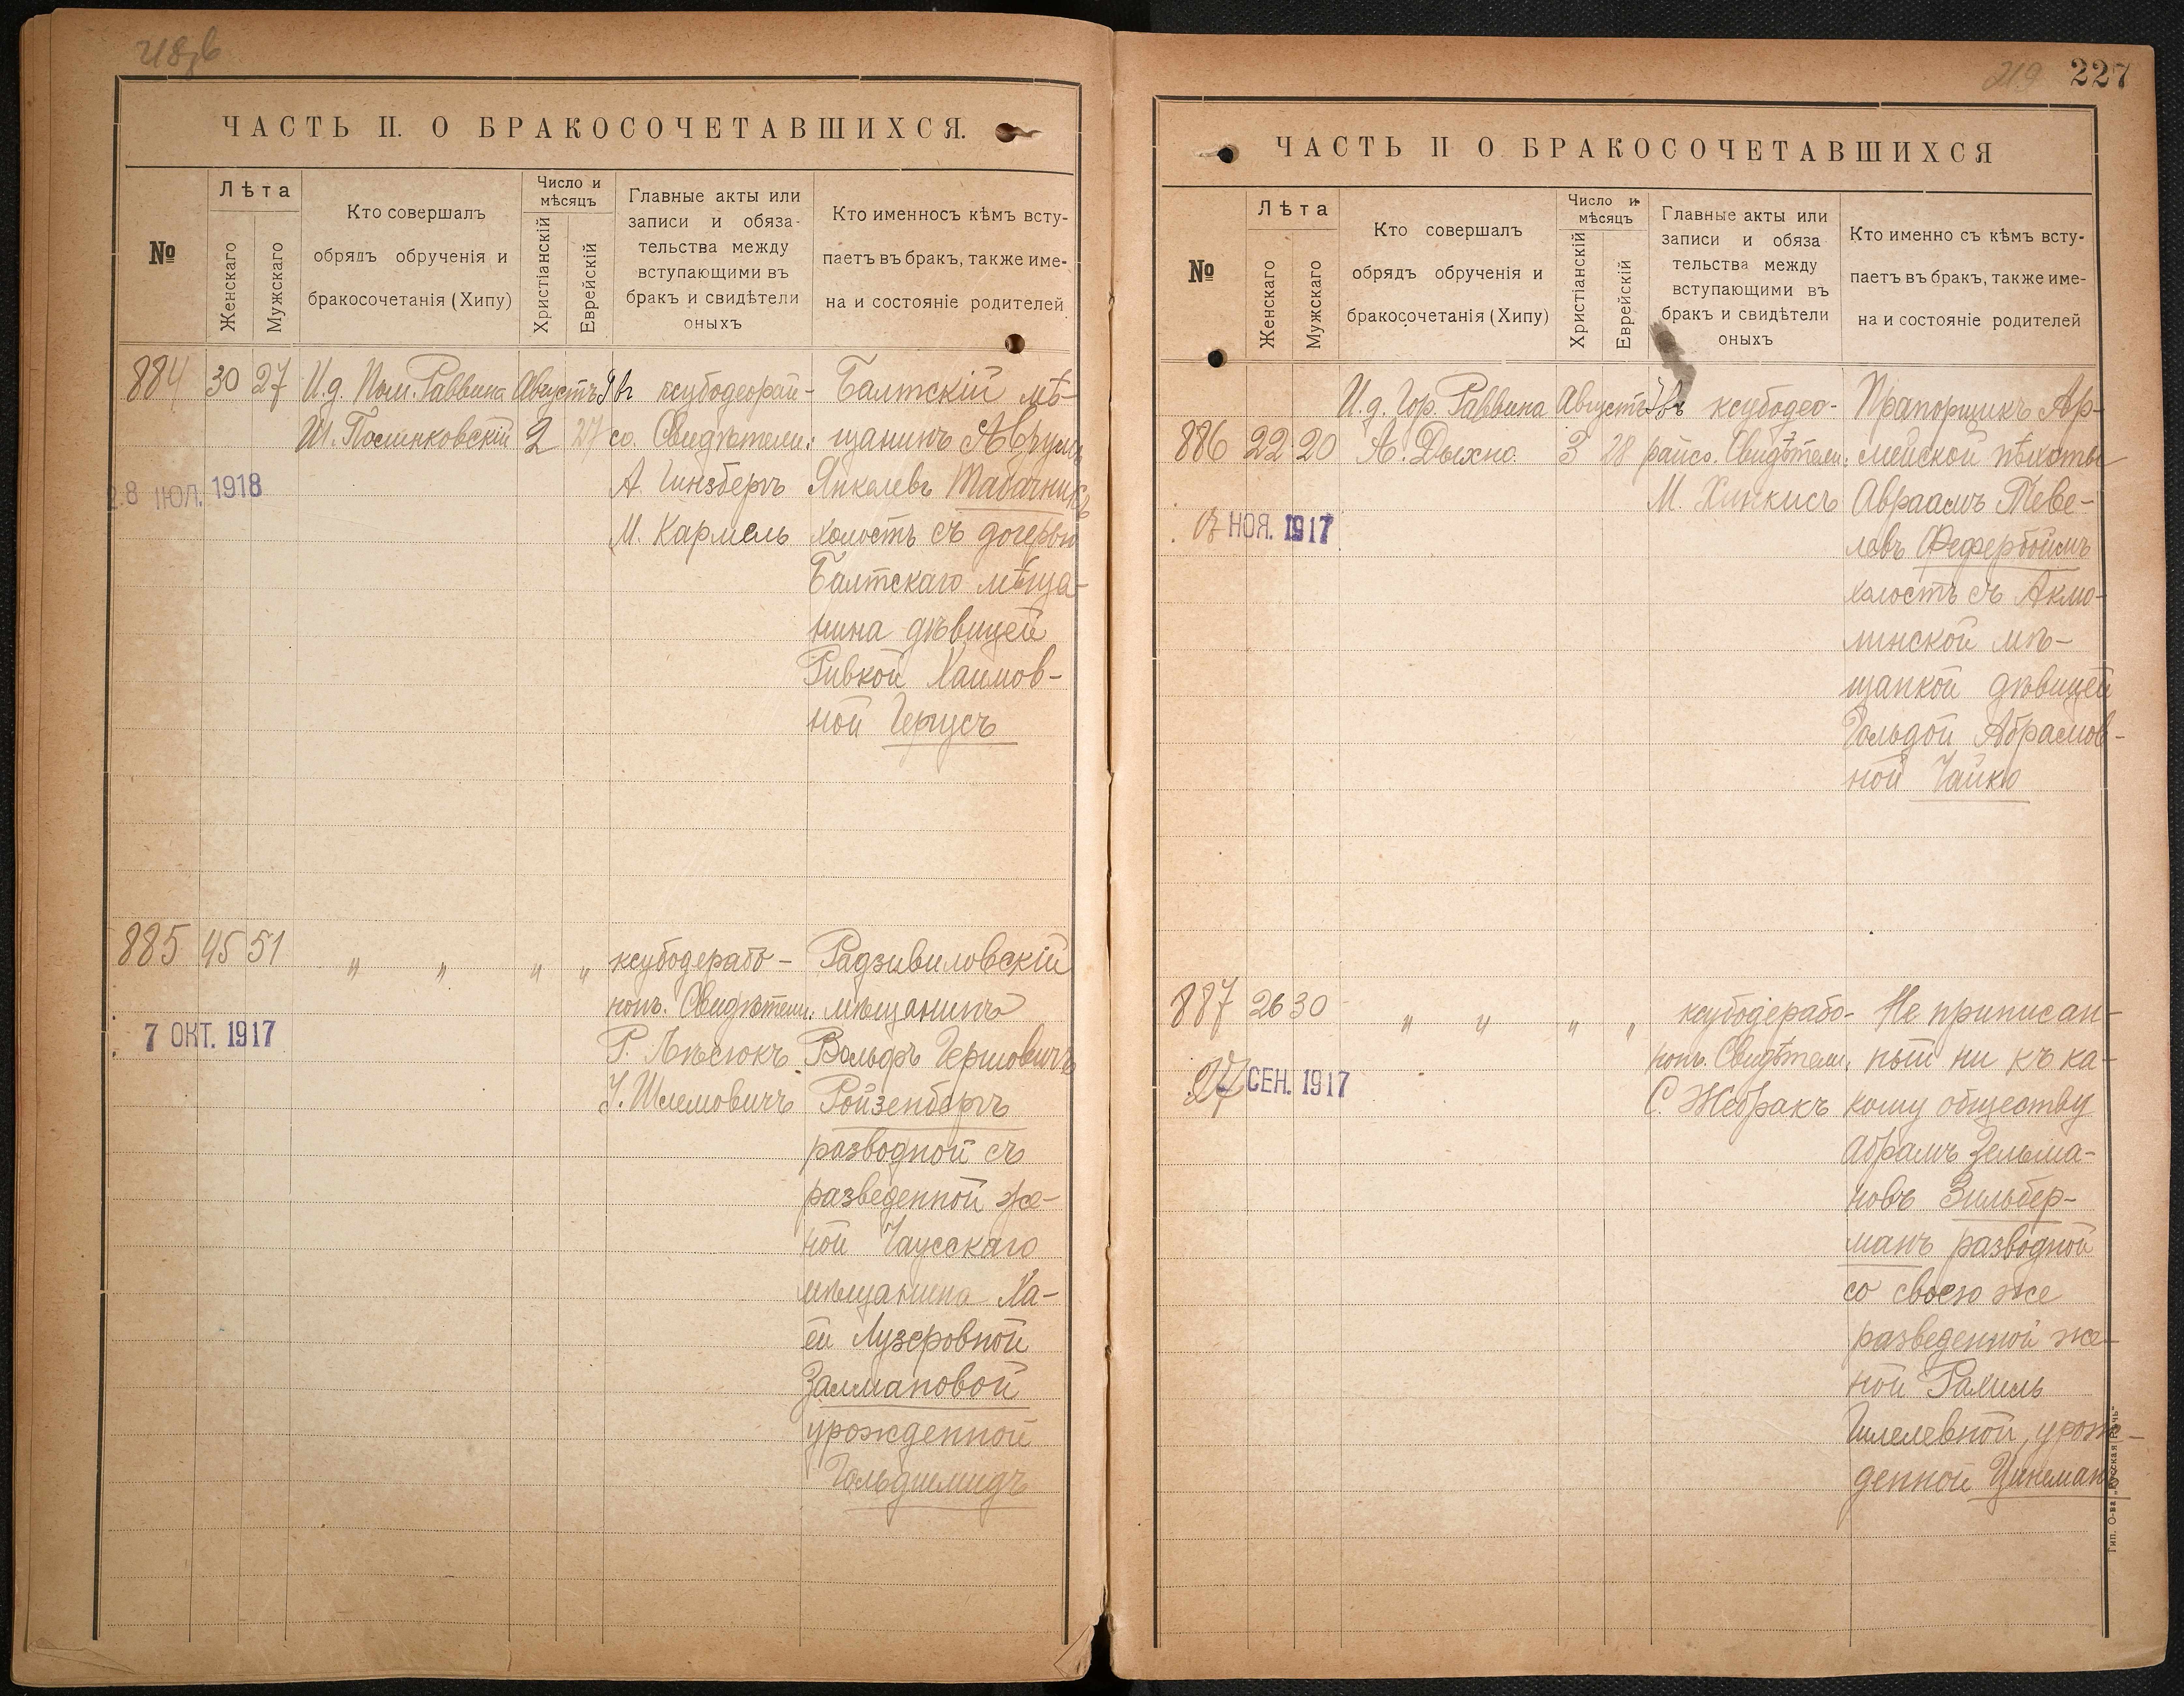 ЧАСТЬ II. О БРАКОСОЧЕТАВШИХСЯ.
№
Лѣта
Женскаго
Мужскаго
Кто совершалъ
обрядъ обрученія и
бракосочетанія (Хипу)
Число и
мѣсяцъ
Христіанскій
Еврейскій
Главные акты или
записи и обяза-
тельства между
вступающими въ
бракъ и свидѣтели
оныхъ
Кто именносъ кѣмъ всту-
паетъ въ бракъ, также име-
на и состояніе родителей
884 30 27
И.д. Пом. Раввина
Ш. Полинковскій
Августъ
2 27
ксубодеорай-
со. Свидѣтели:
А. Гинзбергъ
М. Кармель
Балтскій мѣ-
щанинъ Аврумъ
Янкелевъ Табачникъ
холостъ съ дочерью
Балтскаго мѣща-
нина дѣвицей
Ривкой Хаимов-
ной Герцусъ
28 ІЮЛ. 1918
885 45 51
" " " "
ксубодерабо-
нонъ. Свидѣтели:
Р. Лѣсюкъ
У. Шлемовичъ
Радзивиловскій
мѣщанинъ
Вольфъ Гершовичъ
Ройзенбергъ
разводной съ
разведенной же-
ной Чаусскаго
мѣщанина Ха-
ей Лузеровной
Залмановой
урожденной
Гольдшмидъ
7 ОКТ. 1917
219 227
ЧАСТЬ II О БРАКОСОЧЕТАВШИХСЯ
№
Лѣта
Женскаго
Мужскаго
Кто совершалъ
обрядъ обрученія и
бракосочетанія (Хипу)
Число и
мѣсяцъ
Христіанскій
Еврейскій
Главные акты или
записи и обяза
тельства между
вступающими въ
бракъ и свидѣтели
оныхъ
Кто именно съ кѣмъ всту-
паетъ въ бракъ, также име-
на и состояніе родителей
886 22 20
И.д. Гор. Раввина
А. Дыхно.
Августъ
3 28
ксубодео-
райсо. Свидѣтели:
М. Хинкисъ
Прапорщикъ Ар-
мейской пѣхоты
Авраамъ Теве-
левъ Фефербоймъ
холостъ съ Акмо-
линской мѣ-
щанкой дѣвицей
Гольдой Абрамов-
ной Чайко
НОЯ. 1917
887 26 30
" " " "
ксубодерабо-
нонъ. Свидѣтели:
С. Жебракъ
Не приписан-
ный ни къ ка-
кому обществу
Абрамъ Зельма-
новъ Зильбер-
манъ разводной
со своею же
разведенной же-
ной Рахиль
Гилелевной, урож-
денной Цинеманъ
27 СЕН. 1917
Тип. О-ва „Русская Рѣчь"